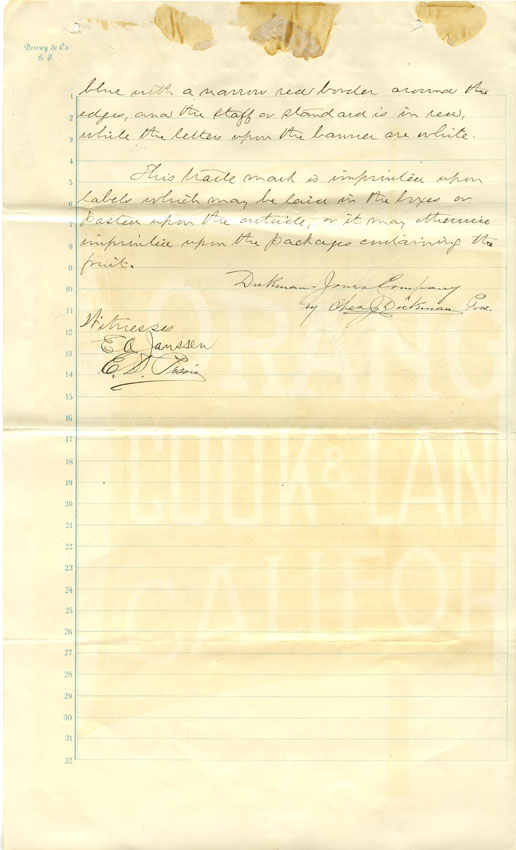 Dewey & Co.
S. F.
1 blue with a narrow red border around the
2 edges, and the staff or standard is in red,
3 while the letters upon the banner are white.
4
5 This trade mark is imprinted upon
6 labels which may be laid in the boxes or
7 pasted upon the outside, or it may otherwise
8 imprinted upon the packages containing the
9 fruit.
10 Dickman-Jones Company
11 by Chas. J. Dickman Pres.
Witnesses
12
13 E. A. Janssen
14 E. D.
15
16
17
18
19
20
21
22
23
24
25
26
27
28
29
30
31
32
ORANG
COOK & LAN
CALIFOR